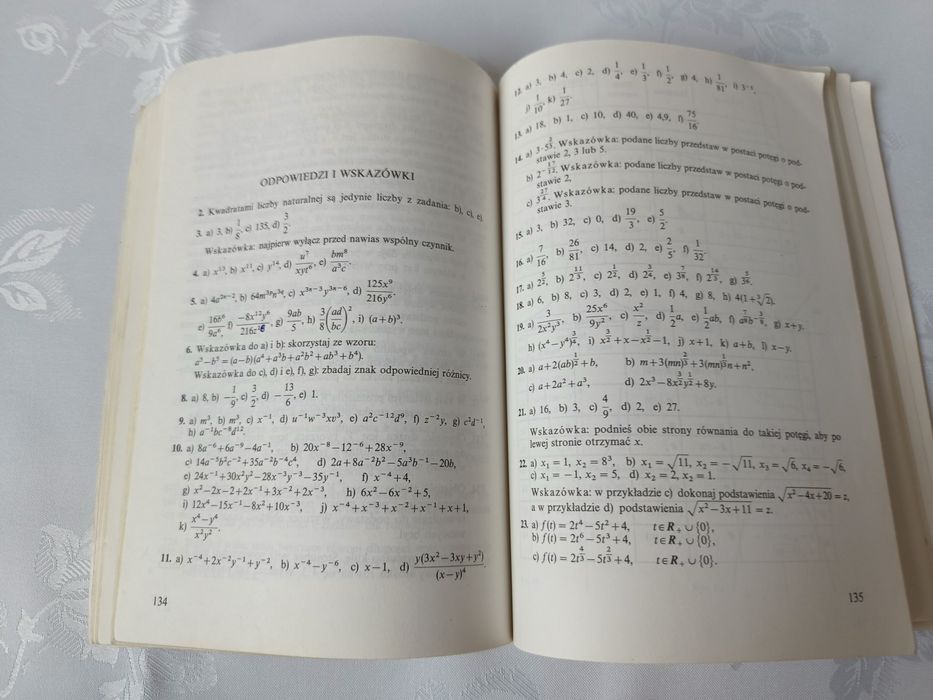 ODPOWIEDZI I WSKAZÓWKI
2. Kwadratami liczby naturalnej są jedynie liczby z zadania: b), c), e).
3. a) 3, b) 1/5, c) 135, d) 3/2.
Wskazówka: najpierw wyłącz przed nawias wspólny czynnik.
4. a) x¹³, b) x¹¹, c) y¹⁴, d) u⁷/(xyt⁶), e) bm⁸/(a³c).
5. a) 4a²ⁿ⁻², b) 64m³ⁿn³q, c) x³ⁿ⁻³y³ⁿ⁻⁶, d) 125x⁹/(216y⁶).
e) 16b⁶/(9a⁶), f) −8x¹²y⁶/216z¹⁸, g) 9ab/5, h) 3/8(ad/bc)², i) (a+b)³.
6. Wskazówka do a) i b): skorzystaj ze wzoru:
a⁵−b⁵ = (a−b)(a⁴+a³b+a²b²+ab³+b⁴).
Wskazówka do c), d) i e), f), g): zbadaj znak odpowiedniej różnicy.
8. a) 8, b) −1/9, c) 3/2, d) −13/6, e) 1.
9. a) m³, b) m³, c) x⁻¹, d) u⁻¹w⁻³xv³, e) a²c⁻¹²d⁹, f) z⁻²y, g) c²d⁻¹,
h) a⁻¹bc⁻⁸d¹².
10. a) 8a⁻⁶+6a⁻⁹−4a⁻¹, b) 20x⁻⁸−12⁻⁶+28x⁻⁹,
c) 14a⁻⁵b²c⁻²+35a⁻²b⁻⁴c⁴, d) 2a+8a⁻²b²−5a³b⁻¹−20b,
e) 24x⁻¹+30x²y²−28x⁻³y⁻³−35y⁻¹, f) x⁻⁴+4,
g) x²−2x−2+2x⁻¹+3x⁻²+2x⁻³, h) 6x²−6x⁻²+5,
i) 12x⁴−15x⁻¹−8x²+10x⁻³, j) x⁻⁴+x⁻³+x⁻²+x⁻¹+x+1,
k) (x⁴−y⁴)/(x²y²).
11. a) x⁻⁴+2x⁻²y⁻¹+y⁻², b) x⁻⁴−y⁻⁶, c) x−1, d) y(3x²−3xy+y²)/(x−y)⁴.
134
12. a) 3, b) 4, c) 2, d) 1/4, e) 1/3, f) 1/2, g) 4, h) 1/81, i) 3⁻¹,
j) 1/10, k) 1/27.
13. a) 18, b) 1, c) 10, d) 40, e) 4,9, f) 75/16.
14. a) 3·5^(2/3). Wskazówka: podane liczby przedstaw w postaci potęgi o pod-
stawie 2, 3 lub 5.
b) 2^(−17/12). Wskazówka: podane liczby przedstaw w postaci potęgi o pod-
stawie 2,
c) 3^(27/4). Wskazówka: podane liczby przedstaw w postaci potęgi o pod-
stawie 3.
15. a) 3, b) 32, c) 0, d) 19/3, e) 5/2.
16. a) 7/16, b) 26/81, c) 14, d) 2, e) 2/5, f) 1/32.
17. a) 2^(5/2), b) 2^(11/3), c) 2^(1/2), d) 2^(3/4), e) 3^(7/8), f) 2^(14/3), g) 5^(3/4).
18. a) 6, b) 8, c) 3, d) 2, e) 1, f) 4, g) 8, h) 4(1+∛2).
19. a) 3/(2x²y³), b) 25x⁶/(9y²), c) x²/z, d) 1/2a, e) 1/2ab, f) a^(7/8)b^(−3/8), g) x+y.
h) (x⁴−y⁴)^(3/4), i) x^(3/2)+x−x^(1/2)−1, j) x+1, k) a+b, l) x−y.
20. a) a+2(ab)^(1/2)+b, b) m+3(mn)^(2/3)+3(mn)^(1/3)n+n²,
c) a+2a²+a³, d) 2x³−8x^(3/2)y^(1/2)+8y.
21. a) 16, b) 3, c) 4/9, d) 2, e) 27.
Wskazówka: podnieś obie strony równania do takiej potęgi, aby po
lewej stronie otrzymać x.
22. a) x₁ = 1, x₂ = 8³, b) x₁ = √11, x₂ = −√11, x₃ = √6, x₄ = −√6,
c) x₁ = −1, x₂ = 5, d) x₂ = 2, x₂ = 1.
Wskazówka: w przykładzie c) dokonaj podstawienia √(x²−4x+20) = z,
a w przykładzie d) podstawienia √(x²−3x+11) = z.
23. a) f(t) = 2t⁴−5t²+4, t∈R₊∪{0},
b) f(t) = 2t⁶−5t³+4, t∈R₊∪{0},
c) f(t) = 2t^(4/3)−5t^(2/3)+4, t∈R₊∪{0}.
135